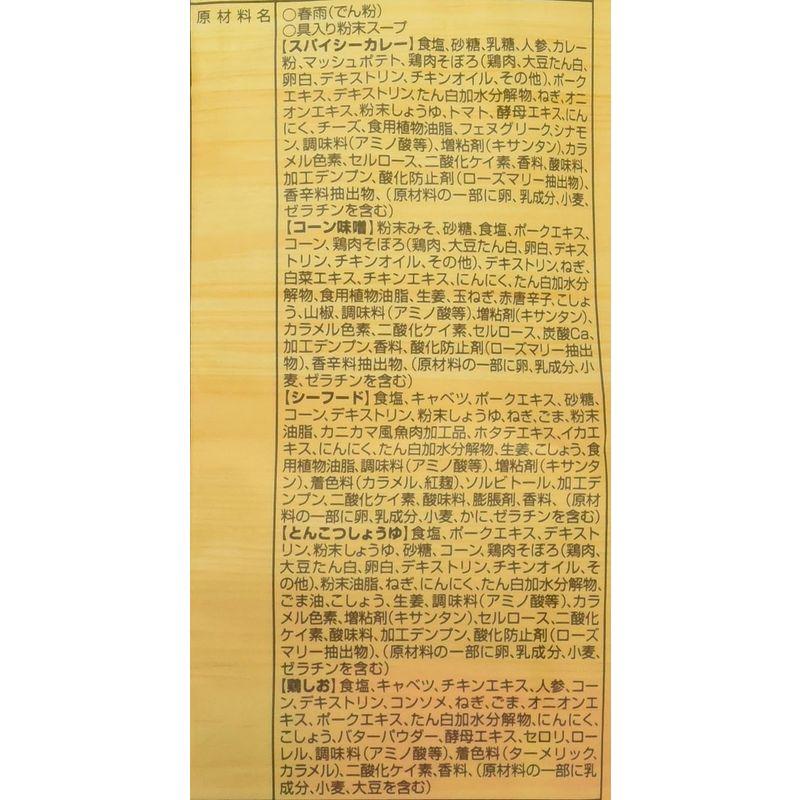 原材料名
○春雨(でん粉)
○具入り粉末スープ
【スパイシーカレー】食塩、砂糖、乳糖、人参、カレー
粉、マッシュポテト、鶏肉そぼろ(鶏肉、大豆たん白、
卵白、デキストリン、チキンオイル、その他)、ポーク
エキス、デキストリン、たん白加水分解物、ねぎ、オニ
オンエキス、粉末しょうゆ、トマト、酵母エキス、にん
にく、チーズ、食用植物油脂、フェヌグリーク、シナモ
ン、調味料(アミノ酸等)、増粘剤(キサンタン)、カラ
メル色素、セルロース、二酸化ケイ素、香料、酸味料、
加工デンプン、酸化防止剤(ローズマリー抽出物)、
香辛料抽出物、(原材料の一部に卵、乳成分、小麦、
ゼラチンを含む)
【コーン味噌】粉末みそ、砂糖、食塩、ポークエキス、
コーン、鶏肉そぼろ(鶏肉、大豆たん白、卵白、デキス
トリン、チキンオイル、その他)、デキストリン、ねぎ、
白菜エキス、チキンエキス、にんにく、たん白加水分
解物、食用植物油脂、生姜、玉ねぎ、赤唐辛子、こしょ
う、山椒、調味料(アミノ酸等)、増粘剤(キサンタン)、
カラメル色素、二酸化ケイ素、セルロース、炭酸Ca、
加工デンプン、香料、酸化防止剤(ローズマリー抽出
物)、香辛料抽出物、(原材料の一部に卵、乳成分、小
麦、ゼラチンを含む)
【シーフード】食塩、キャベツ、ポークエキス、砂糖、
コーン、デキストリン、粉末しょうゆ、ねぎ、ごま、粉末
油脂、カニカマ風魚肉加工品、ホタテエキス、イカエ
キス、にんにく、たん白加水分解物、生姜、こしょう、食
用植物油脂、調味料(アミノ酸等)、増粘剤(キサンタ
ン)、着色料(カラメル、紅麹)、ソルビトール、加工デ
ンプン、二酸化ケイ素、酸味料、膨脹剤、香料、(原材
料の一部に卵、乳成分、小麦、かに、ゼラチンを含む)
【とんこつしょうゆ】食塩、ポークエキス、デキスト
リン、粉末しょうゆ、砂糖、コーン、鶏肉そぼろ(鶏肉、
大豆たん白、卵白、デキストリン、チキンオイル、そ
の他)、粉末油脂、ねぎ、にんにく、たん白加水分解物、
ごま油、こしょう、生姜、調味料(アミノ酸等)、カラ
メル色素、増粘剤(キサンタン)、セルロース、二酸化
ケイ素、酸味料、加工デンプン、酸化防止剤(ローズ
マリー抽出物)、(原材料の一部に卵、乳成分、小麦、
ゼラチンを含む)
【鶏しお】食塩、キャベツ、チキンエキス、人参、コー
ン、デキストリン、コンソメ、ねぎ、ごま、オニオンエ
キス、ポークエキス、たん白加水分解物、にんにく、
こしょう、バターパウダー、酵母エキス、セロリ、ロー
レル、調味料(アミノ酸等)、着色料(ターメリック、
カラメル)、二酸化ケイ素、香料、(原材料の一部に乳
成分、小麦、大豆を含む)